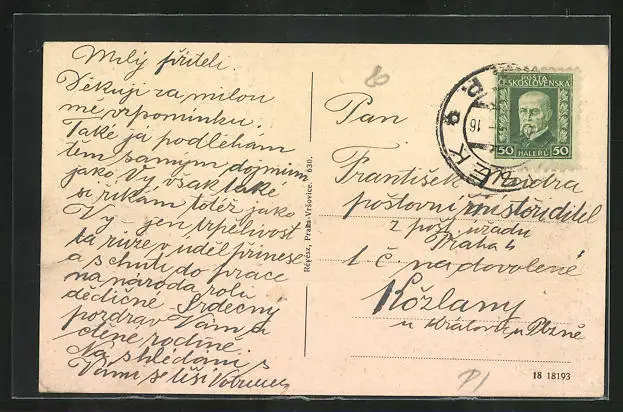 Milý příteli
Děkuji za milou
mě vzpomínku.
Také já podléhám
těm samým dojmům
jako Vy, však také
si říkám totéž jako
Vy - jen trpělivost
ta růže v úděl přinese
a s chutí do práce
na národa rolu
dědičné Srdečný
pozdrav Vám a
ctěné rodině.
Na shledání s
Vámi se těší
Révész, Praha-Vršovice. 630.
80
POŠTA
ČESKOSLOVENSKÁ
50 HALÉŘŮ 50
16
Pan
František
poštovní
z pošt. úřadu
Praha
t. č. na dovolené
Kožlany
u Kralovic u Plzně
18 18193